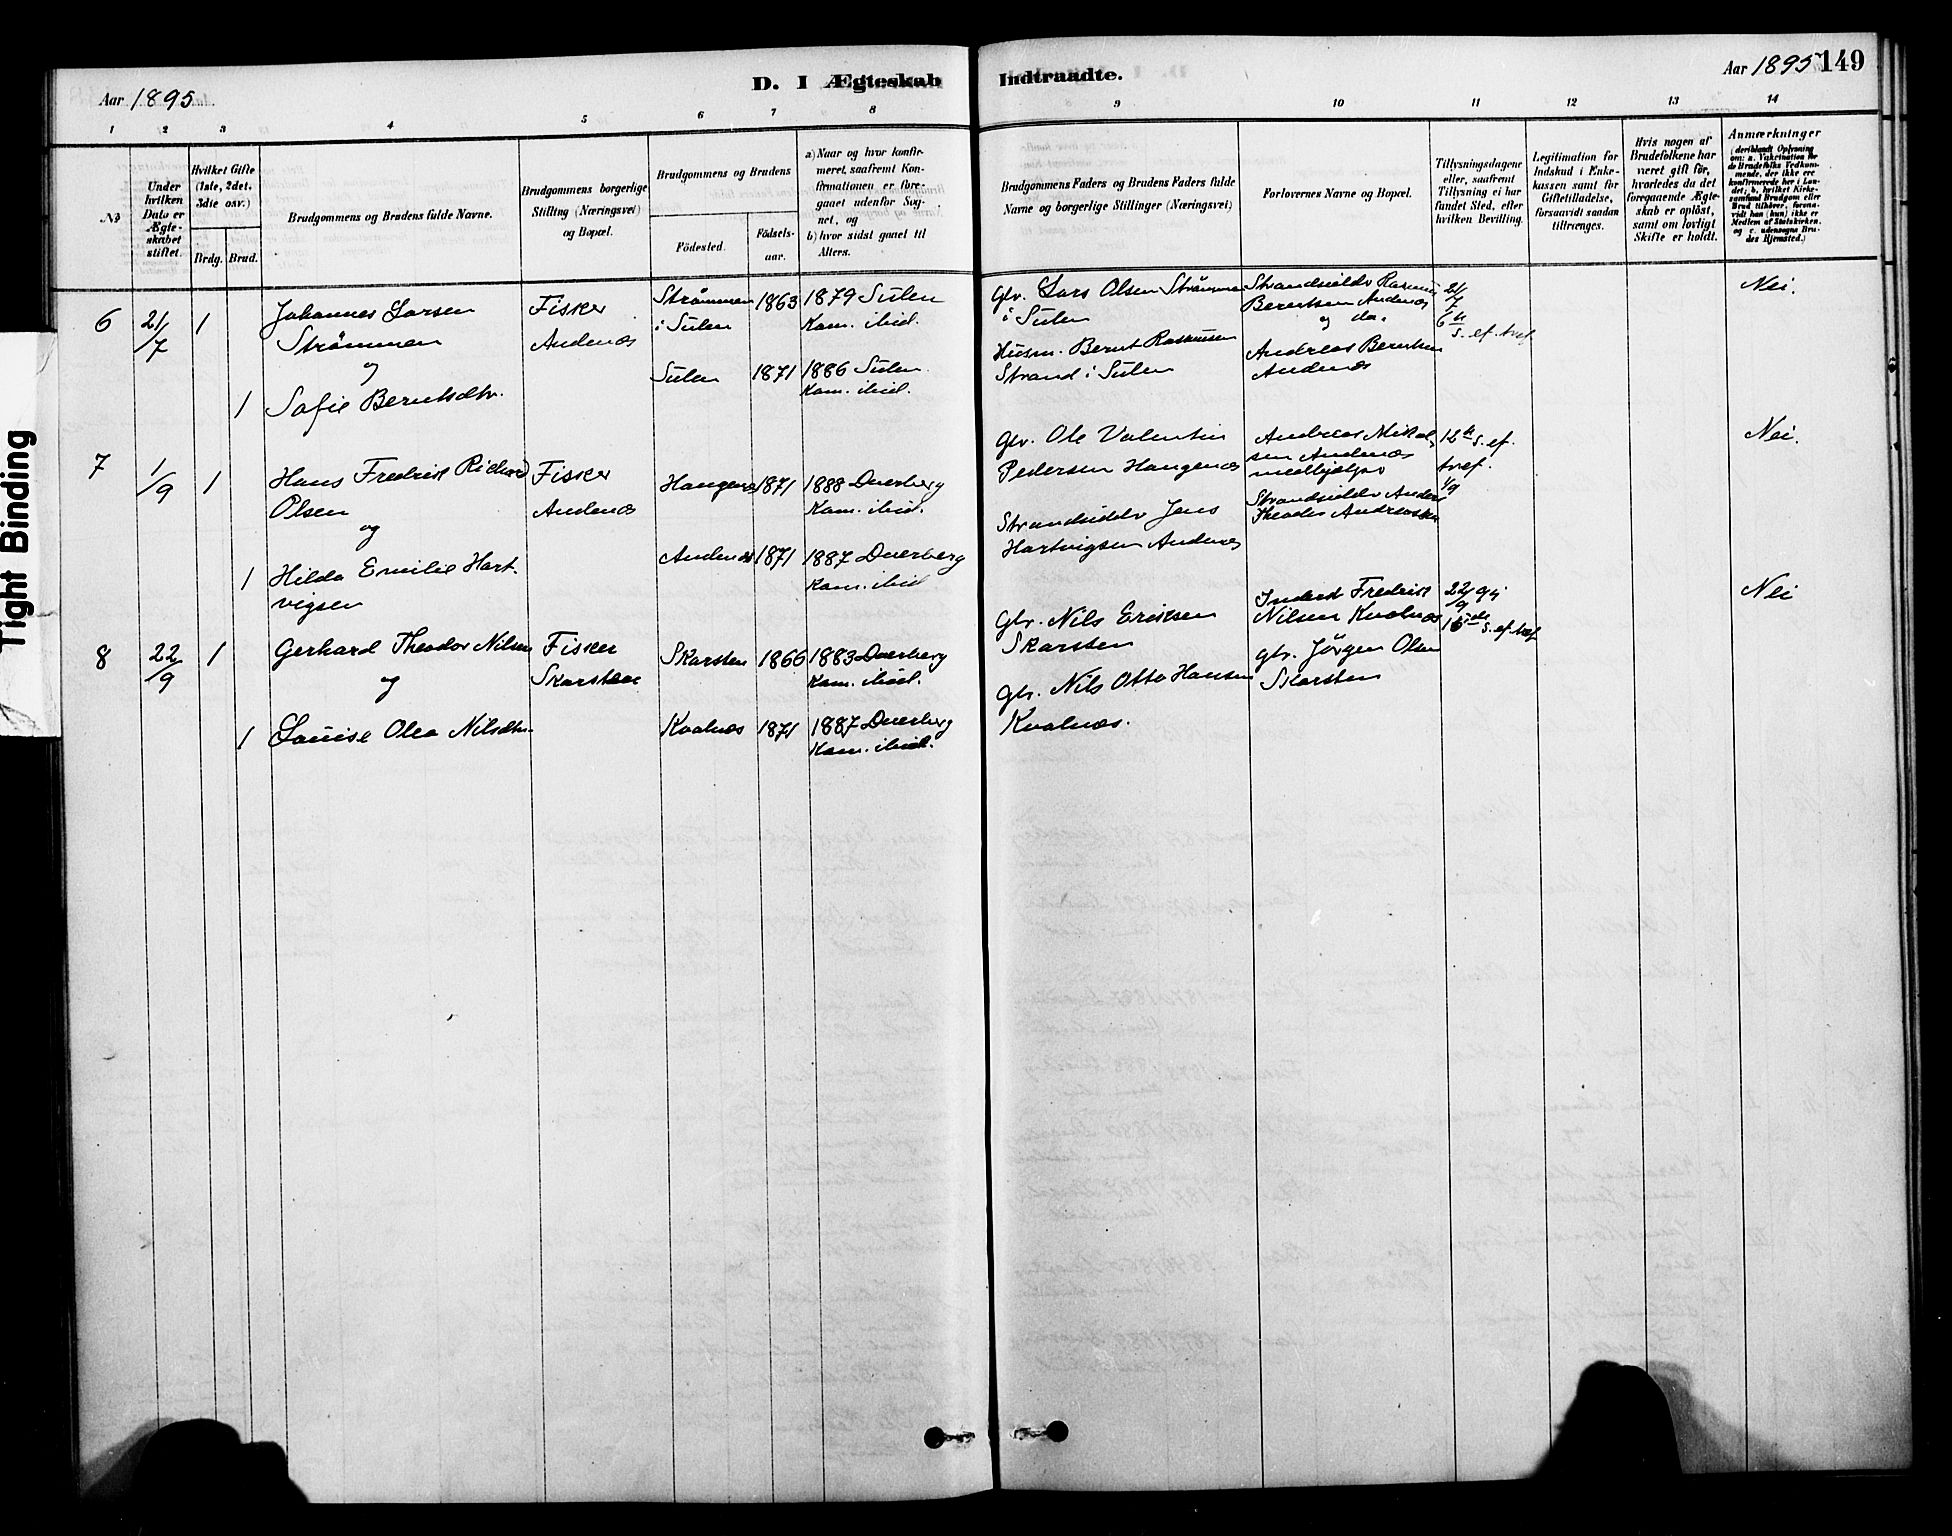 Tight Binding
Aar 1895
D. I Ægteskab Indtraadte.
Aar 1895
149
1 2 3 4 5 6 7 8 9 10 11 12 13 14
No
Under hvilken Dato er Ægteskabet stiftet.
Hvilket Gifte (1ste, 2det, 3die osv.)
Brdg. Brud.
Brudgommens og Brudens fulde Navne.
Brudgommens borgerlige Stilling (Næringsvei) og Bopæl.
Brudgommens og Brudens
Födested.
Födsels-aar.
a) Naar og hvor konfirmeret, saafremt Konfirmationen er foregaaet udenfor Sognet, og
b) hvor sidst gaaet til Alters.
Brudgommens Faders og Brudens Faders fulde Navne og borgerlige Stillinger (Næringsvei)
Forlovernes Navne og Bopæl.
Tillysningsdagene eller, saafremt Tillysning ei har fundet Sted, efter hvilken Bevilling.
Legitimation for Indskud i Enkekassen samt for Giftetilladelse, forsaavidt saadan tiltrænges.
Hvis nogen af Brudefolkene har været gift för, hvorledes da det foregaaende Ægteskab er oplöst, samt om lovligt Skifte er holdt.
Anmærkninger
(deriblandt Oplysning om: a. Vakcination for de Brudefolks Vedkommende, der ikke ere konfirmerede her i Landet; b. hvilket Kirkesamfund Brudgom eller Brud tilhörer, forsaavidt han (hun) ikke er Medlem af Statskirken, og c. udensogns Brudes Hjemsted.)
6 21/7 1 Johannes Larsen
Strømmen
og
1 Sofie Berntsdtr.
Fisker
Andenæs
Strømmen 1863 1879 Sulen
i Sulen Kom. ibid.
Sulen 1871 1886 Sulen
Kom. ibid.
Gbr. Lars Olsen Strømmen
i Sulen
Husm. Bernt Rasmussen
Strand i Sulen
Strandsidder Rasmus
Berntsen Andenæs
og do.
Andreas Berntsen
Andenæs
21/7
6te s. ef. tref.
Nei.
7 1/9 1 Hans Fredrik Richard
Olsen
og
1 Hilda Emilie Hart-
vigsen
Fisker
Andenæs
Haugenæs 1871 1888 Dverberg
Kom. ibid.
Andenæs 1871 1887 Dverberg
Kom. ibid
Gbr. Ole Valentin
Pedersen Haugenæs
Strandsidder Jens
Hartvigsen Andenæs
Andreas Mikal-
sen Andenæs
medhjælper
Strandsidder Anders
Theodor Andreassen
12te s. ef.
tref.
1/9
Nei.
8 22/9 1 Gerhard Theodor Nilsen
og
1 Louise Olea Nilsdtr.
Fisker
Skarsten
Skarsten 1866 1883 Dverberg
Kom. ibid.
Kvalnæs 1871 1887 Dverberg
Kom. ibid.
Gbr. Nils Eriksen
Skarsten
Gbr. Nils Otto Hansen
Kvalnæs.
Inderst Fredrik
Nilsen Kvalnæs
gbr. Jørgen Olsen
Skarsten
22/9 95
15de s. ef. tref.
Nei